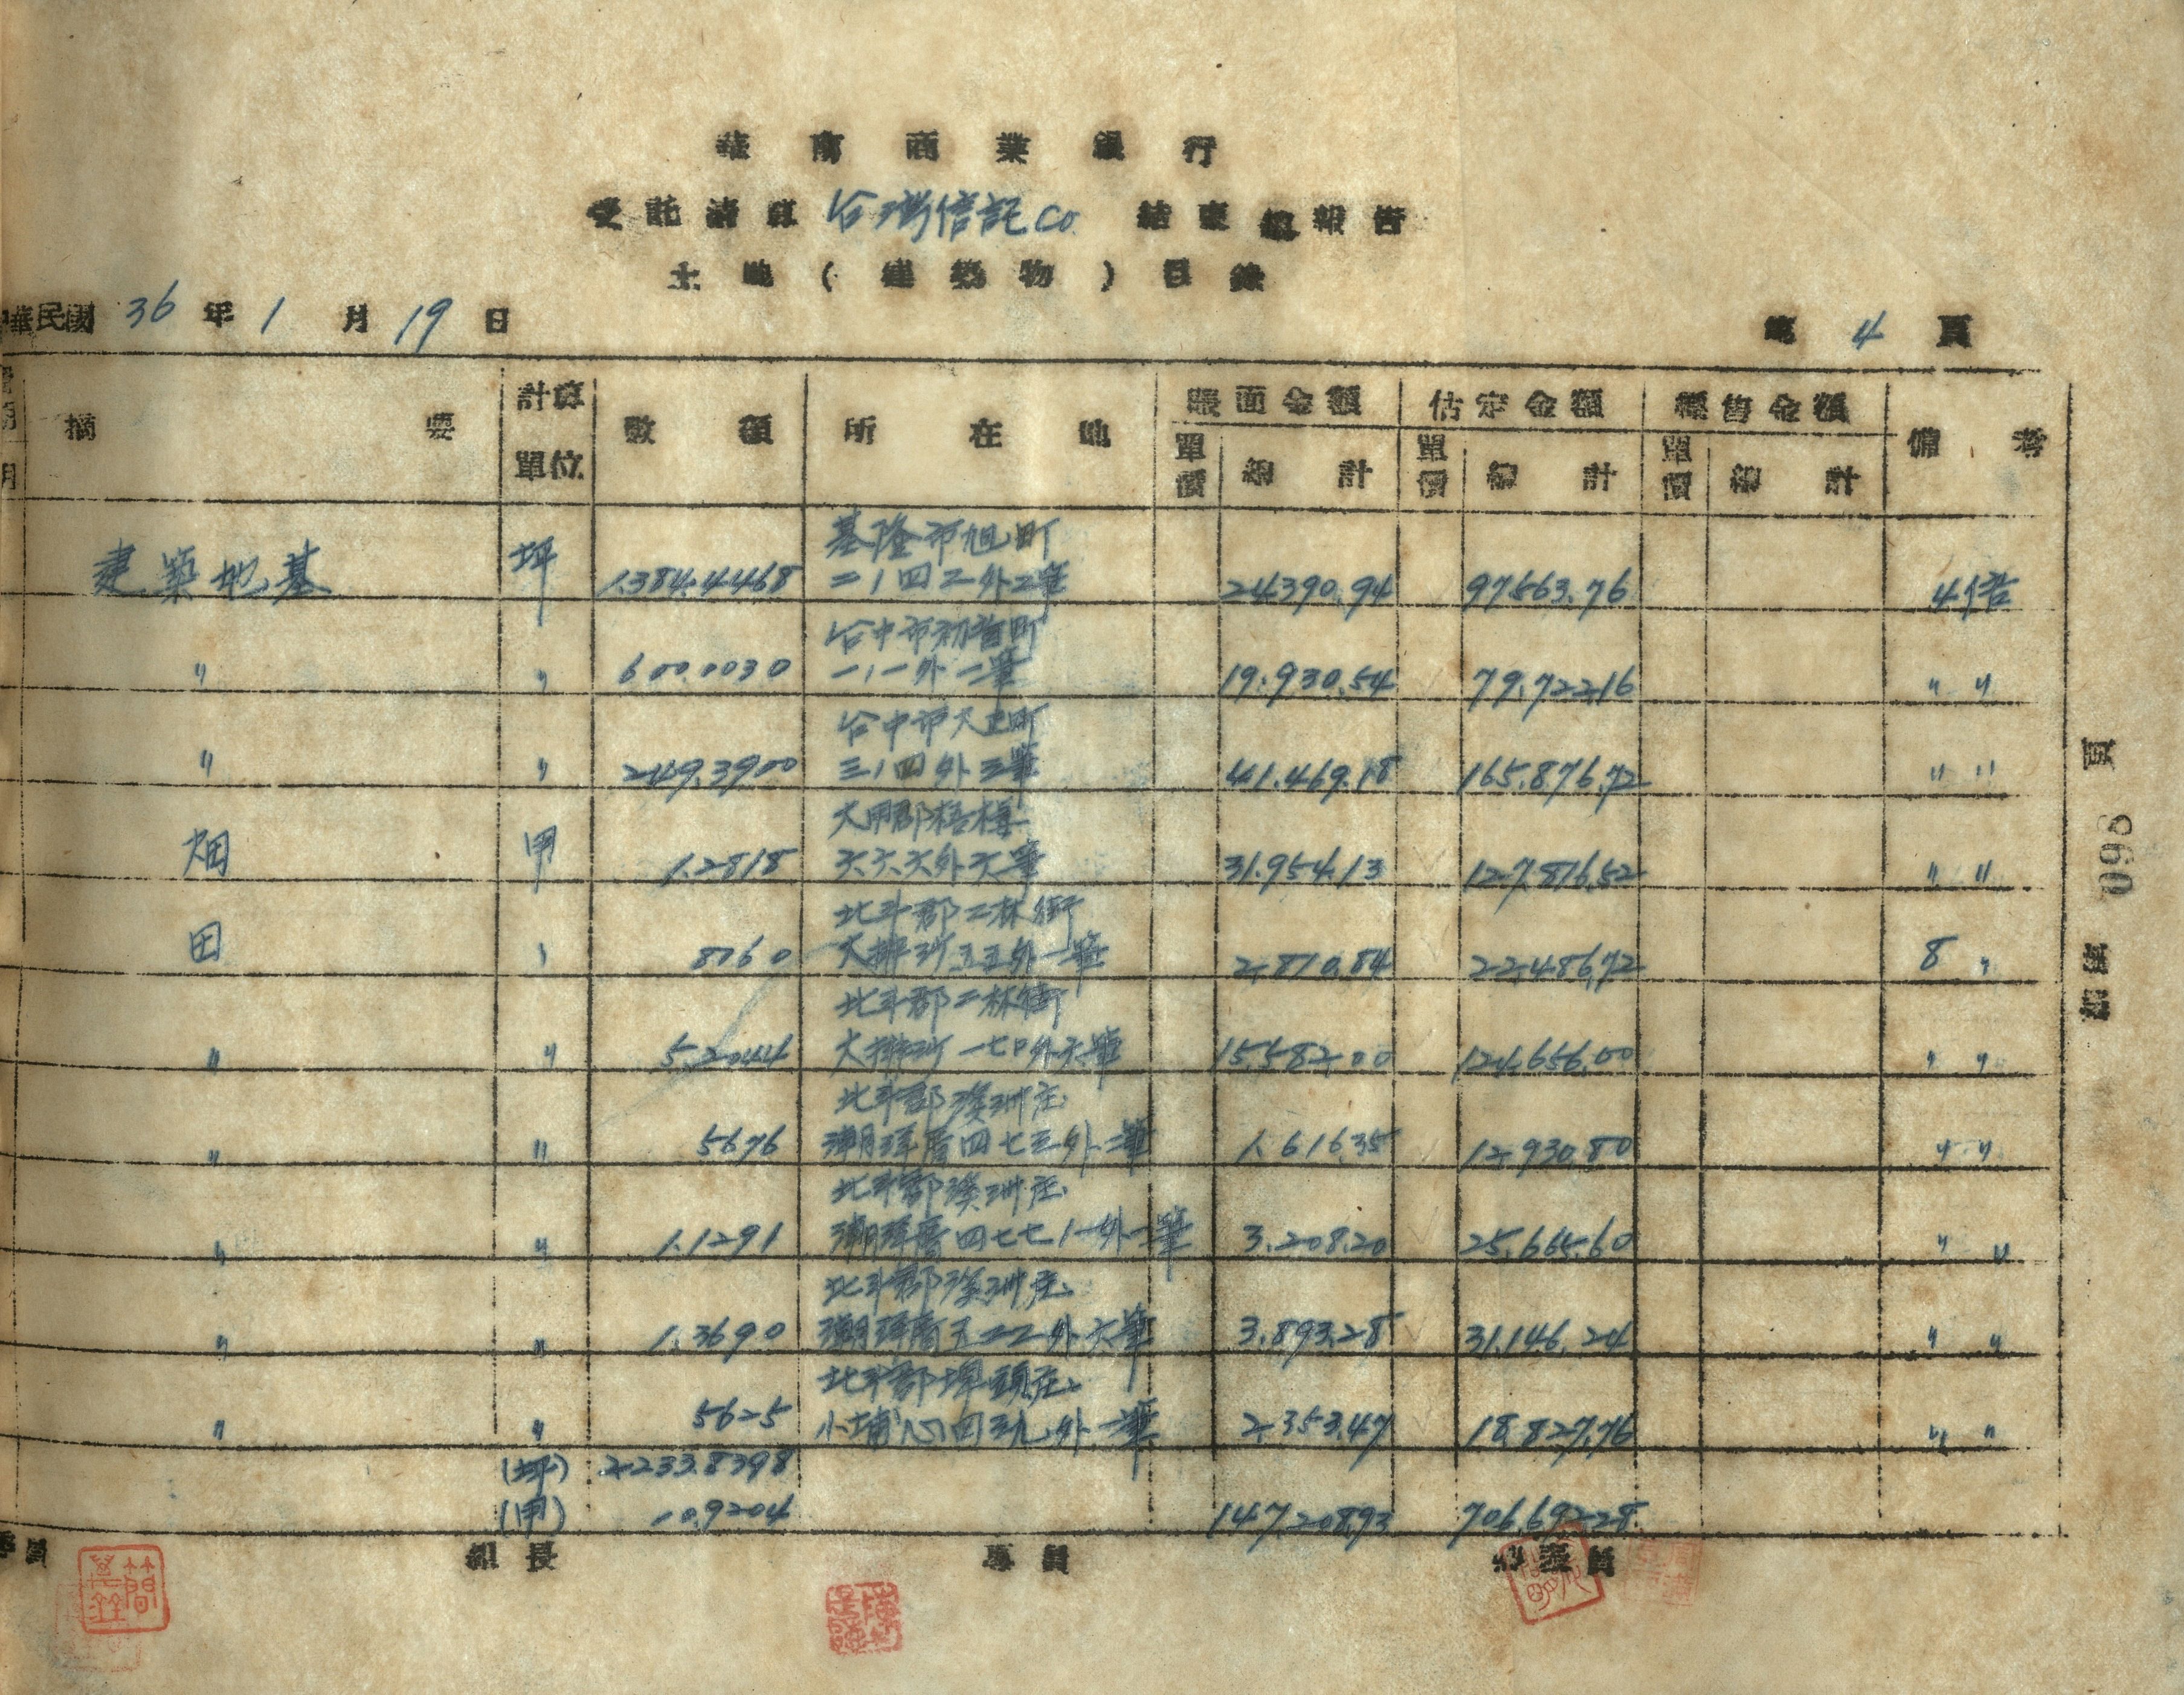 華南商業銀行
受託清算 台灣信託Co. 結束總報告
土地(建築物)目錄
華民國 36 年 1 月 19 日
第 4 頁
摘 要 計算單位 數額 所在地 賬面金額 單價 總計 估定金額 單價 總計 標售金額 單價 總計 備考
基隆市旭町
建築地基 坪 1.384.4468 二ノ四二外二筆 24.390.94 97.563.76 4倍
台中市初音町
〃 〃 600.0030 一ノ一外一筆 19.930.54 79.722.16 〃 〃
台中市大正町
〃 〃 249.3900 三ノ四外三筆 41.469.18 165.876.72 〃 〃
大甲郡梧棲
畑 甲 1.2818 六六六外六筆 31.954.13 127.816.52 〃 〃
北斗郡二林街
田 〃 8760 大排沙五五外一筆 2.810.84 22.486.72 8 〃
北斗郡二林街
〃 〃 5.2044 大排沙一七〇外六筆 15.582.00 124.656.00 〃 〃
北斗郡溪洲庄
〃 〃 5676 潮洋厝四七三外二筆 1.616.35 12.930.80 〃 〃
北斗郡溪洲庄
〃 〃 1.1291 潮洋厝四七七ノ一外一筆 3.208.20 25.665.60 〃 〃
北斗郡溪洲庄
〃 〃 1.3690 潮洋厝五二二外六筆 3.893.28 31.146.24 〃 〃
北斗郡埤頭庄
〃 〃 5625 小埔心四三九外一筆 2.353.47 18.827.76 〃 〃
(坪) 2.233.8398
(甲) 10.9204 147.208.93 706.692.28
專員 組長 專員 秘書
頁 098 號